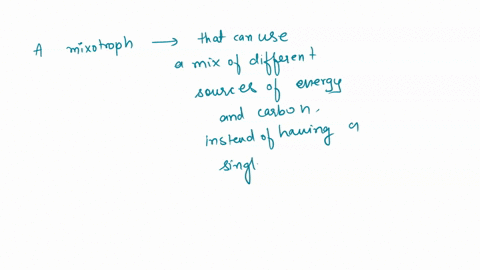 A mixotroph → that can use
a mix of different
sources of energy
and carbon.
instead of having a
singl